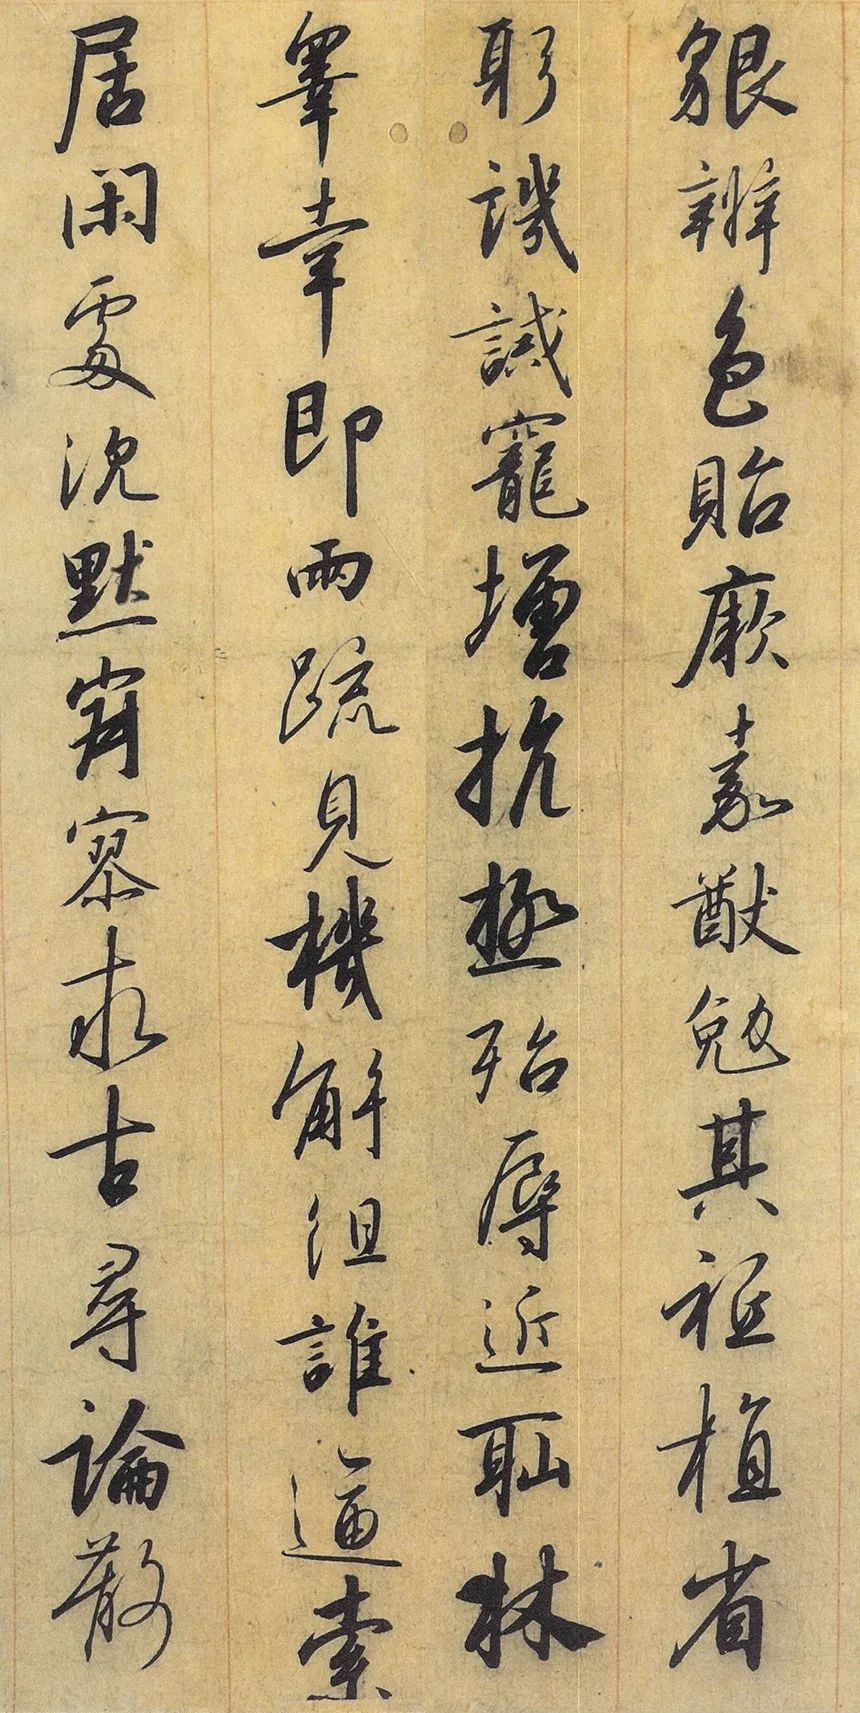 貌辨色貽厥嘉猷勉其祗植省
躬譏誡寵增抗極殆辱近耻林
睪幸即兩疏見機解組誰逼索
居閑處沉默寂寥求古尋論散